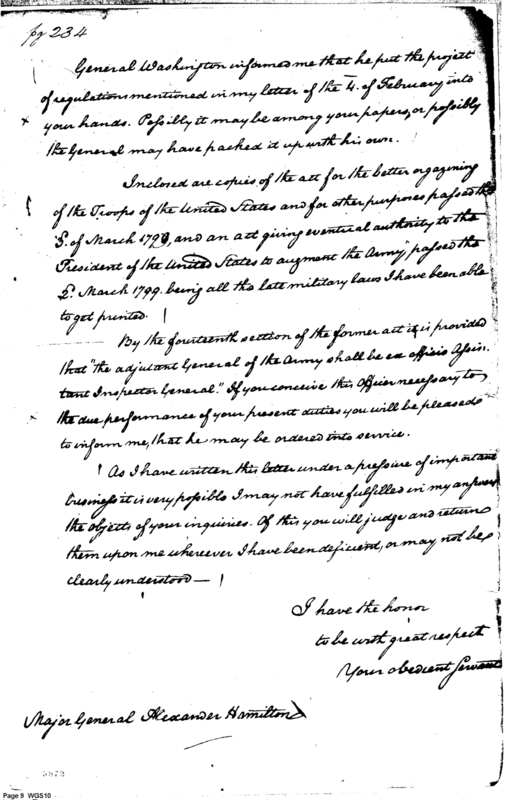 pg 234
General Washington informed me that he put the project
of regulations mentioned in my letter of the 4. of February into
your hands. Possibly it may be among your papers, or possibly
the General may have packed it up with his own.
Inclosed are copies of the act for the better organizing
of the Troops of the United States and for other purposes passed the
3. of March 1799, and an act giving eventual authority to the
President of the United States to augment the Army," passed the
2. March 1799. being all the late military laws I have been able
to get printed.
By the fourteenth section of the former act it is provided
that "the adjutant General of the Army shall be ex officio Assis-
tant Inspector General." If you conceive this Officer necessary to
the due performance of your present duties you will be pleased
to inform me, that he may be ordered into service.
As I have written this letter under a pressure of important
business it is very possible I may not have fulfilled in my answers
the objects of your inquiries. Of this you will judge and return
them upon me wherever I have been deficient, or may not be
clearly understood—
I have the honor
to be with great respect
Your obedient Servant
Major General Alexander Hamilton
5873
Page 9 WGS10